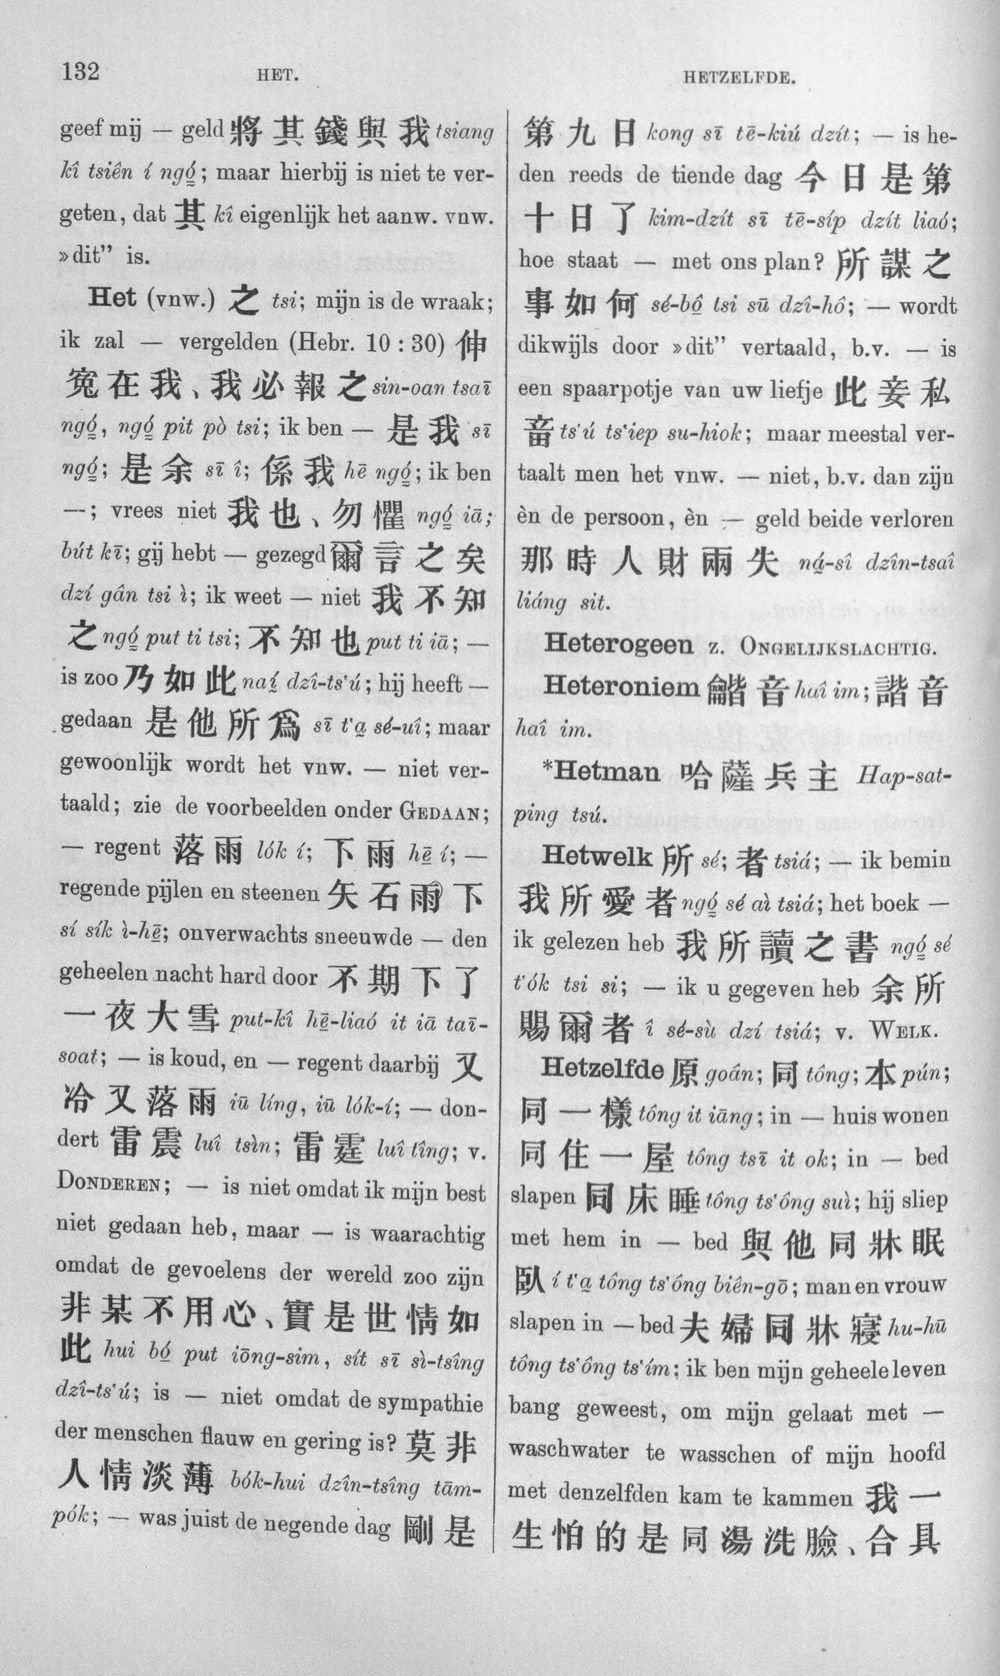 132
HET.
HETZELFDE.
geef mij — geld 將其錢與我 tsiang
kî tsiên í ngó̤; maar hierbij is niet te ver-
geten, dat 其 kî eigenlijk het aanw. vnw.
»dit” is.
Het (vnw.) 之 tsi; mijn is de wraak;
ik zal — vergelden (Hebr. 10 : 30) 伸
寃在我、我必報之 sin-oan tsaī
ngó̤, ngó̤ pit pò tsi; ik ben — 是我 sī
ngó̤; 是余 sī î; 係我 hē ngó̤; ik ben
—; vrees niet 我也、勿懼 ngó̤ iā;
bút kī; gij hebt — gezegd 爾言之矣
dzí gân tsi ì; ik weet — niet 我不知
之 ngó̤ put ti tsi; 不知也 put ti iā; —
is zoo 乃如此 naí̤ dzî-ts‘ú; hij heeft —
gedaan 是他所爲 sī t‘a̤ sé-uî; maar
gewoonlijk wordt het vnw. — niet ver-
taald; zie de voorbeelden onder GEDAAN;
— regent 落雨 lók í; 下雨 hē̤ í; —
regende pijlen en steenen 矢石雨下
sí sík ì-hē̤; onverwachts sneeuwde — den
geheelen nacht hard door 不期下了
一夜大雪 put-kî hē̤-liaó it iā taī-
soat; — is koud, en — regent daarbij 又
冷又落雨 iū líng, iū lók-í; — don-
dert 雷震 luî tsìn; 雷霆 luî tîng; v.
DONDEREN; — is niet omdat ik mijn best
niet gedaan heb, maar — is waarachtig
omdat de gevoelens der wereld zoo zijn
非某不用心、實是世情如
此 hui bó̤ put iōng-sim, sít sī sì-tsîng
dzî-ts‘ú; is — niet omdat de sympathie
der menschen flauw en gering is? 莫非
人情淡薄 bók-hui dzîn-tsîng tām-
pók; — was juist de negende dag 剛是
第九日 kong sī tē-kiú dzít; — is he-
den reeds de tiende dag 今日是第
十日了 kim-dzít sī tē-síp dzít liaó;
hoe staat — met ons plan? 所謀之
事如何 sé-bô̤ tsi sū dzî-hô; — wordt
dikwijls door »dit” vertaald, b.v. — is
een spaarpotje van uw liefje 此妾私
畜 ts‘ú ts‘iep su-hiok; maar meestal ver-
taalt men het vnw. — niet, b.v. dan zijn
èn de persoon, èn — geld beide verloren
那時人財兩失 ná̤-sî dzîn-tsaî
liáng sit.
Heterogeen z. ONGELIJKSLACHTIG.
Heteroniem 龤音 haî im; 諧音
haî im.
*Hetman 哈薩兵主 Hap-sat-
ping tsú.
Hetwelk 所 sé; 者 tsiá; — ik bemin
我所愛者 ngó̤ sé aì tsiá; het boek —
ik gelezen heb 我所讀之書 ngó̤ sé
t‘ók tsi si; — ik u gegeven heb 余所
賜爾者 î sé-sù dzí tsiá; v. WELK.
Hetzelfde 原 goân; 同 tông; 本 pún;
同一樣 tông it iāng; in — huis wonen
同住一屋 tông tsī it ok; in — bed
slapen 同床睡 tông ts‘ông suì; hij sliep
met hem in — bed 與他同牀眠
臥 í t‘a̤ tông ts‘ông biên-gō; man en vrouw
slapen in — bed 夫婦同牀寢 hu-hū
tông ts‘ông ts‘ím; ik ben mijn geheele leven
bang geweest, om mijn gelaat met —
waschwater te wasschen of mijn hoofd
met denzelfden kam te kammen 我一
生怕的是同湯洗臉、合具